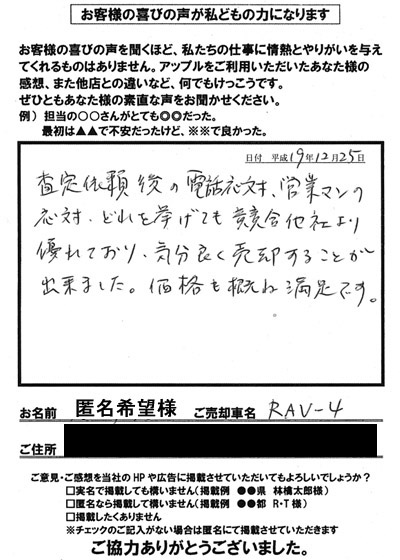 お客様の喜びの声が私どもの力になります
お客様の喜びの声を聞くほど、私たちの仕事に情熱とやりがいを与え
てくれるものはありません。アップルをご利用いただいたあなた様の
感想、また他店との違いなど、何でもけっこうです。
ぜひともあなた様の素直な声をお聞かせください。
例）担当の○○さんがとても◎◎だった。
最初は▲▲で不安だったけど、※※で良かった。
日付 平成19年12月25日
査定依頼後の電話応対、営業マンの
応対、どれを挙げても競合他社より
優れており、気分良く売却することが
出来ました。価格も概ね満足です。
お名前 匿名希望様 ご売却車名 RAV-4
ご住所
ご意見・ご感想を当社のHPや広告に掲載させていただいてもよろしいでしょうか？
□実名で掲載しても構いません（掲載例 ●●県 林檎太郎様）
□匿名なら掲載して構いません（掲載例 ●●都 R・T様）
□掲載したくありません
※チェックのご記入がない場合は匿名にて掲載させていただきます
ご協力ありがとうございました。